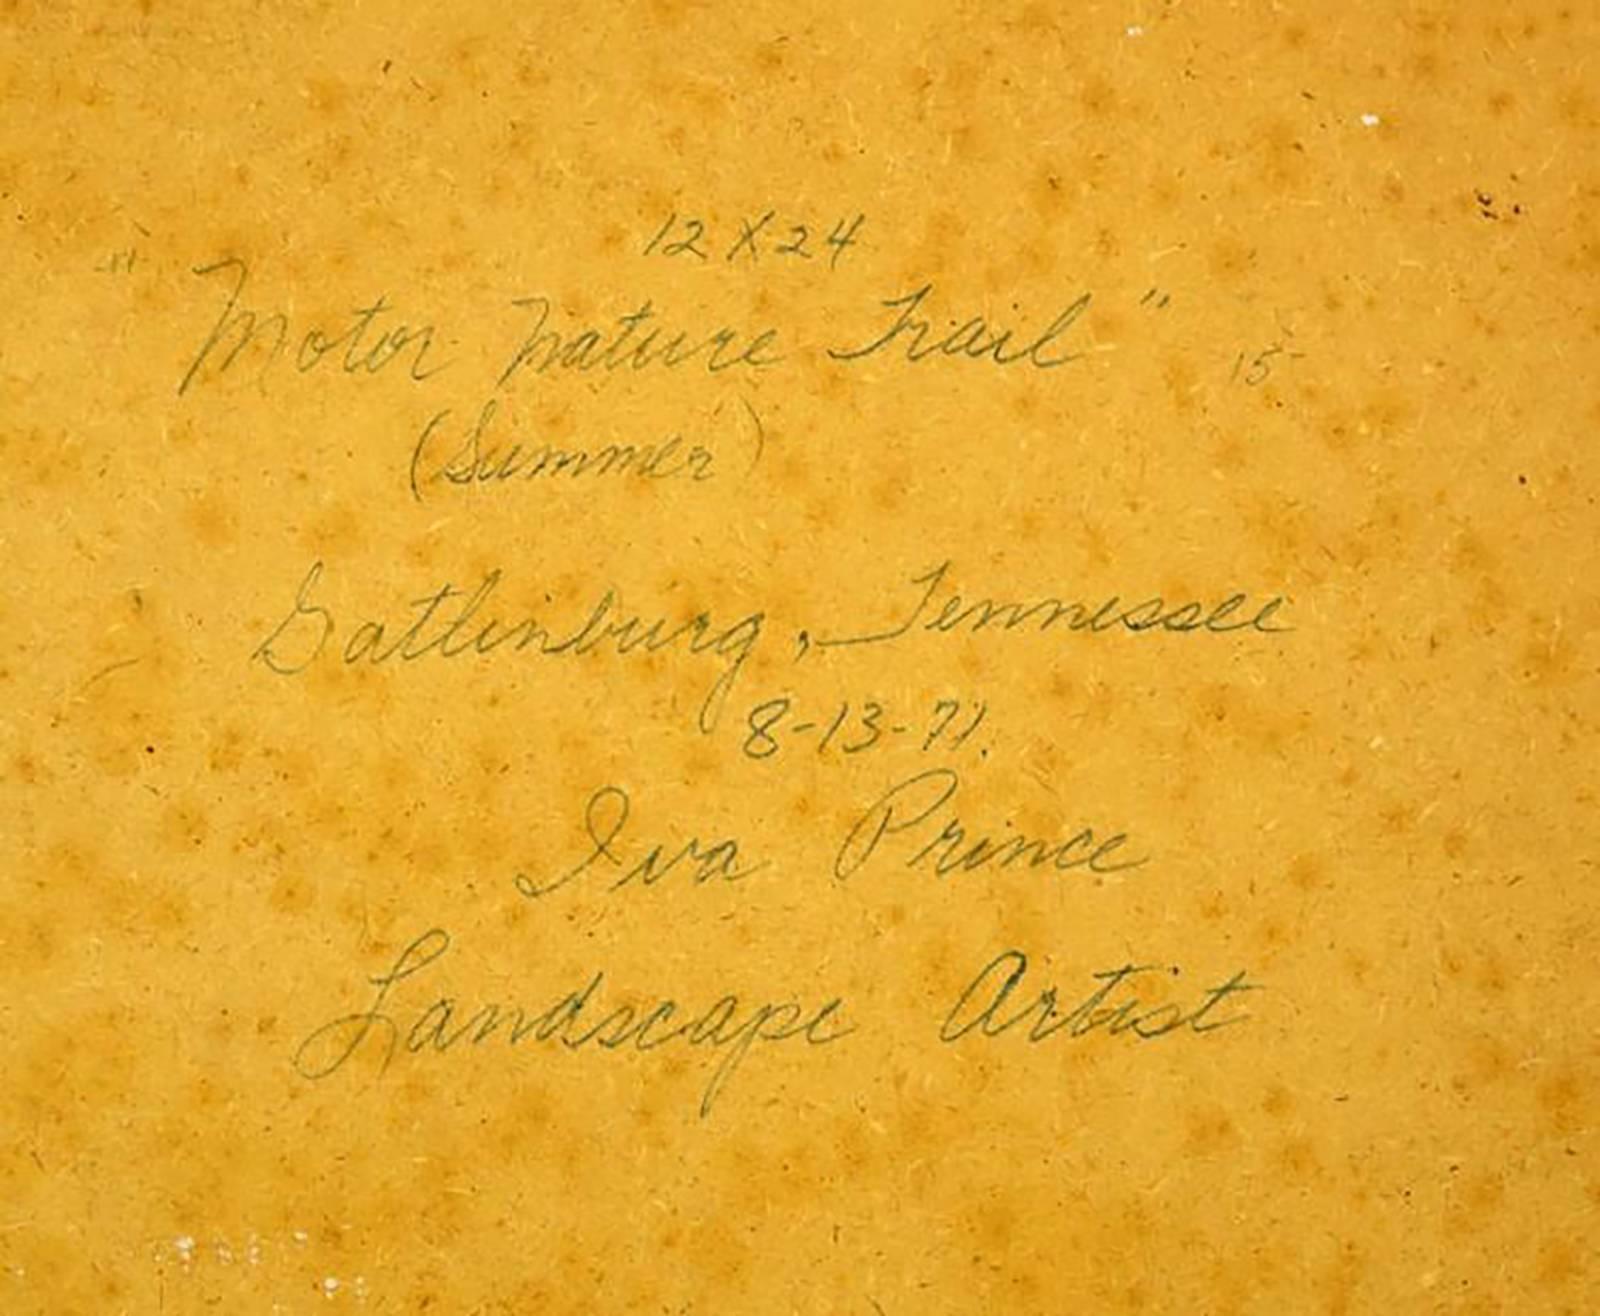 12 X 24
"Motor Nature Trail" 15
(Summer)
Gatlinburg, Tennessee
8-13-71.
Iva Prince
Landscape Artist